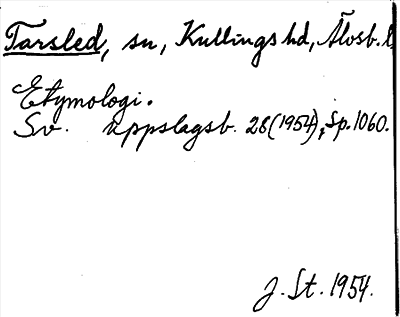 Tarsled, sn, Kullings hd, Älvsb. l.
Etymologi.
Sv. uppslagsb. 28 (1954), sp. 1060.
J. St. 1954.